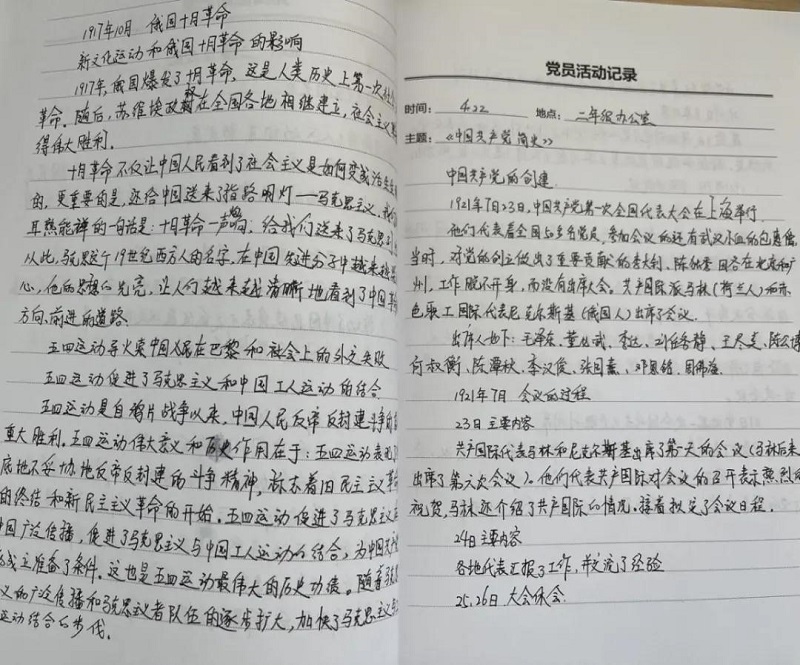 1917年10月 俄国十月革命
新文化运动和俄国十月革命的影响
1917年,俄国爆发了十月革命,这是人类历史上第一次社
革命。随后,苏维埃政权在全国各地相继建立,社会主义
得伟大胜利。
十月革命不仅让中国人民看到了社会主义是如何变成
的,更重要的是,还给中国送来了指路明灯——马克思主义,
耳熟能祥的一句话是:十月革命一声炮响,给我们送来了马克思
从此,马克思这个19世纪西方人的名字,在中国先进分子中越来越
心,他的思想的光亮,让人们越来越清晰地看到了中国革
方向、前进的道路.
五四运动导火索中国人民在巴黎和社会上的外交失败
五四运动促进了马克思主义和中国工人运动的结合
五四运动是自鸦片战争以来,中国人民反帝反封建斗争的
重大胜利。五四运动伟大意义和历史作用在于:五四运动表现了
底地不妥协地反帝反封建的斗争精神,标志着旧民主主义革
的终结和新民主主义革命的开始。五四运动促进了马克思主义
中国广泛传播,促进了马克思主义与中国工人运动的结合,为中国共产
成立准备了条件。这也是五四运动最伟大的历史功绩。随着
义的广泛传播和马克思主义者队伍的逐步扩大,加快了马克思主义与
运动结合的步伐.
党员活动记录
时间: 4.22 地点: 二年级办公室
主题: 《中国共产党简史》
中国共产党的创建
1921年7月23日,中国共产党第一次全国代表大会在上海举行.
他们代表着全国50多名党员,参加会议的还有武汉小组的包惠僧
当时,对党的创立做出了重要贡献的李大钊、陈独秀因各在北京和广
州,工作脱不开身,而没有出席会。共产国际派马林(荷兰人)和赤
色职工国际代表尼克尔斯基(俄国人)出席了会议.
出席人如下:毛泽东、董必武、李达、刘仁静、王尽美、陈公博
何叔衡、陈潭秋、李汉俊、张国焘、邓恩铭、周佛海.
1921年7月 会议的过程
23日 主要内容
共产国际代表马林和尼克尔斯基出席了第一天的会议(马林后来
出席了第六次会议)。他们代表共产国际对会议的召开表示热烈的
祝贺,马林还介绍了共产国际的情况.接着拟定了会议日程.
24日 主要内容
各地代表汇报了工作,并交流了经验
25.26日 大会休会.